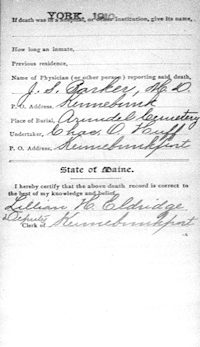 YORK, 1910
If death was in a hospital, or other institution, give its name,
How long an inmate,
Previous residence,
Name of Physician (or other person) reporting said death,
J. S. Barker, M.D.
P. O. Address, Kennebunk
Place of Burial, Arundel Cemetery
Undertaker, Chas. O. Huff
P. O. Address, Kennebunkport
State of Maine.
I hereby certify that the above death record is correct to
the best of my knowledge and belief.
Lillian H. Eldridge
Deputy
Clerk of Kennebunkport